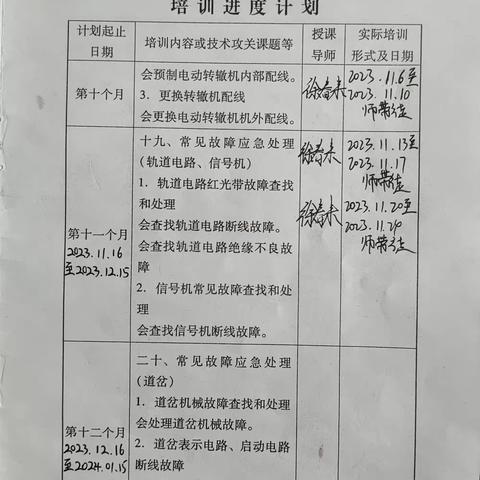 培训进度计划
计划起止
日期
培训内容或技术攻关课题等
授课
导师
实际培训
形式及日期
第十个月
会预制电动转辙机内部配线。
3．更换转辙机配线
会更换电动转辙机机外配线。
徐春来
2023.11.6至
2023.11.10
师带徒
第十一个月
2023.11.16
至2023.12.15
十九、常见故障应急处理
（轨道电路、信号机）
1．轨道电路红光带故障查找
和处理
会查找轨道电路断线故障。
会查找轨道电路绝缘不良故
障
2．信号机常见故障查找和处
理
会查找信号机断线故障。
徐春来
2023.11.13至
2023.11.17
师带徒
徐春来
2023.11.20至
2023.11.24
师带徒
第十二个月
2023.12.16
至2024.01.15
二十、常见故障应急处理
（道岔）
1．道岔机械故障查找和处理
会处理道岔机械故障。
2．道岔表示电路、启动电路
断线故障